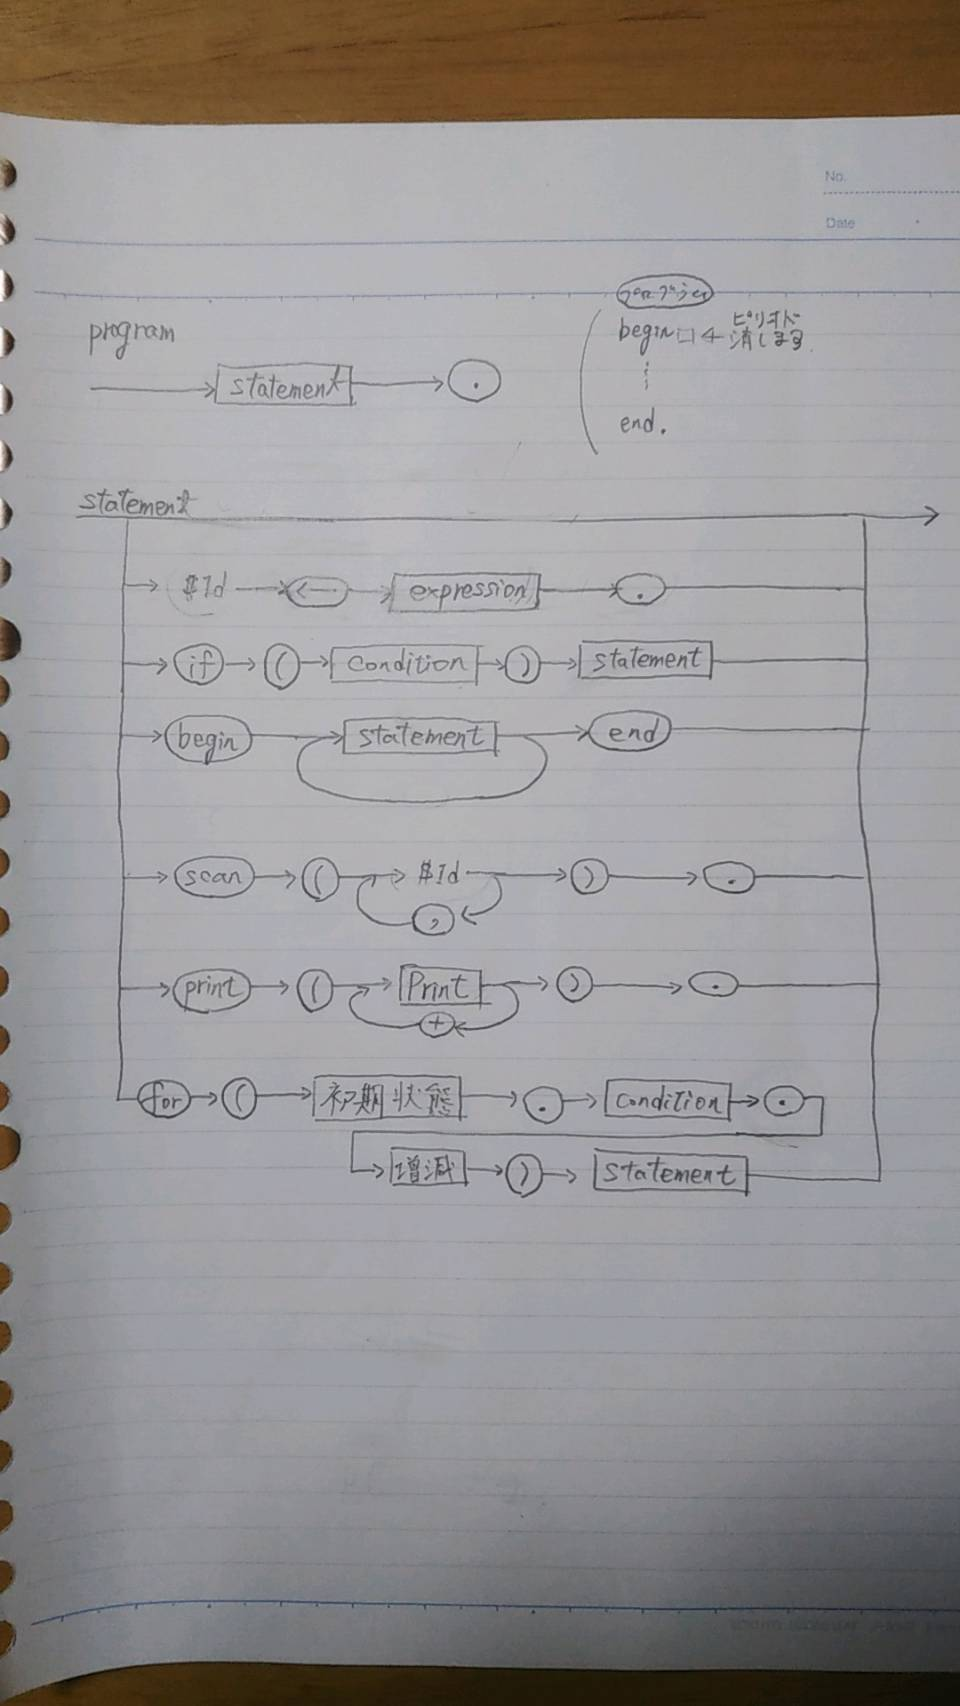 No.
Date
program
statement .
begin □ ← ピリオド
消します
end.
statement
$Id <— expression .
if ( condition ) statement
begin statement end
scan ( $Id ) .
,
print ( Print ) .
+
for ( 初期状態 . condition .
増減 ) statement